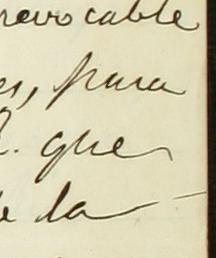 revocable
es, para
que
e la